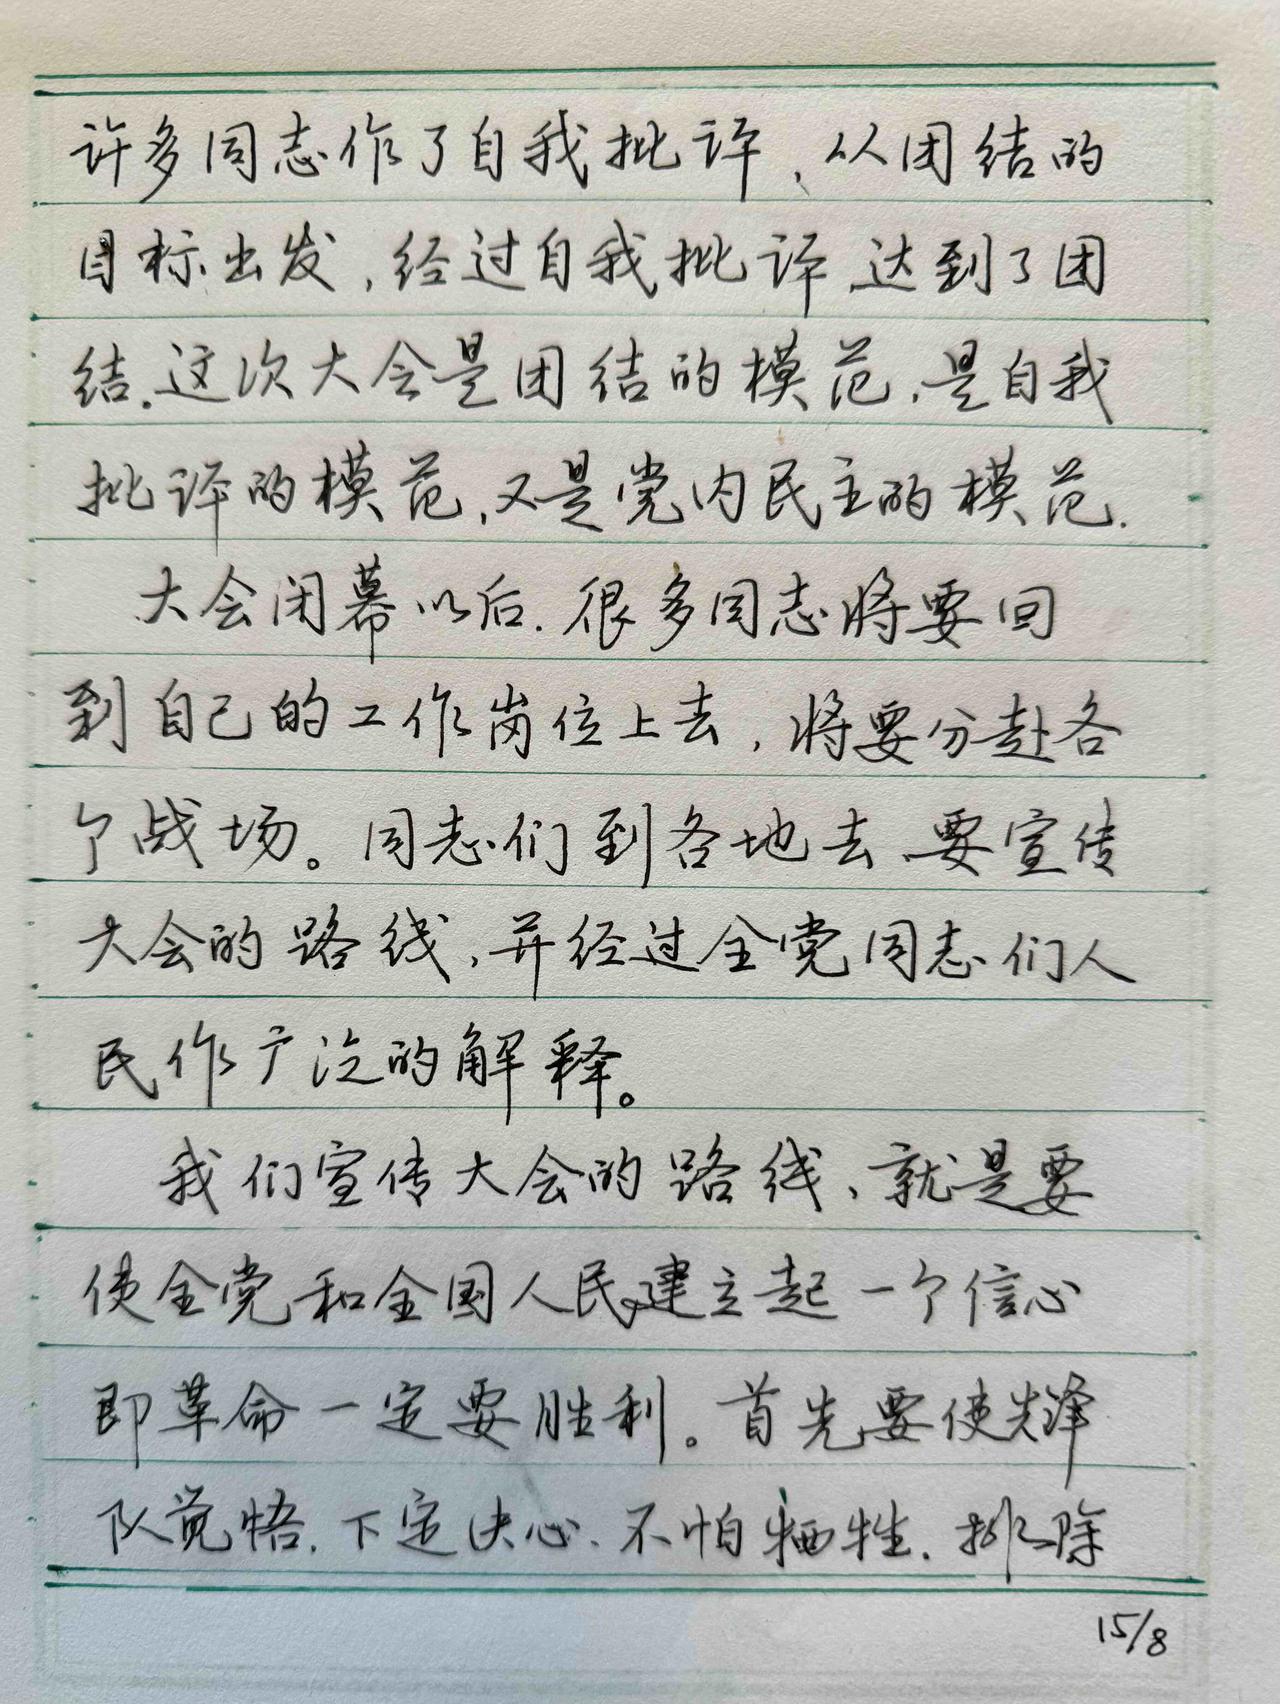 许多同志作了自我批评、从团结的
目标出发，经过自我批评、达到了团
结.这次大会是团结的模范，是自我
批评的模范，又是党内民主的模范.
大会闭幕以后.很多同志将要回
到自己的工作岗位上去，将要分赴各
个战场。同志们到各地去、要宣传
大会的路线，并经过全党同志们人
民作广泛的解释。
我们宣传大会的路线、就是要
使全党和全国人民建立起一个信心
即革命一定要胜利。首先要使先锋
队觉悟.下定决心、不怕牺牲.排除
15/8